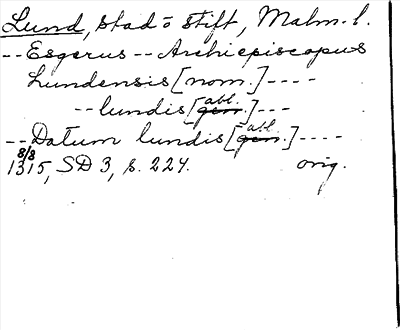 Lund, stad o stift, Malm. l.
-- Esgerus -- Archiepiscopus
Lundensis [nom.] ----
-- lundis [gen. abl.] ---
-- Datum lundis [gen. abl.] ----
8/8 1315, SD 3, s. 224. orig.